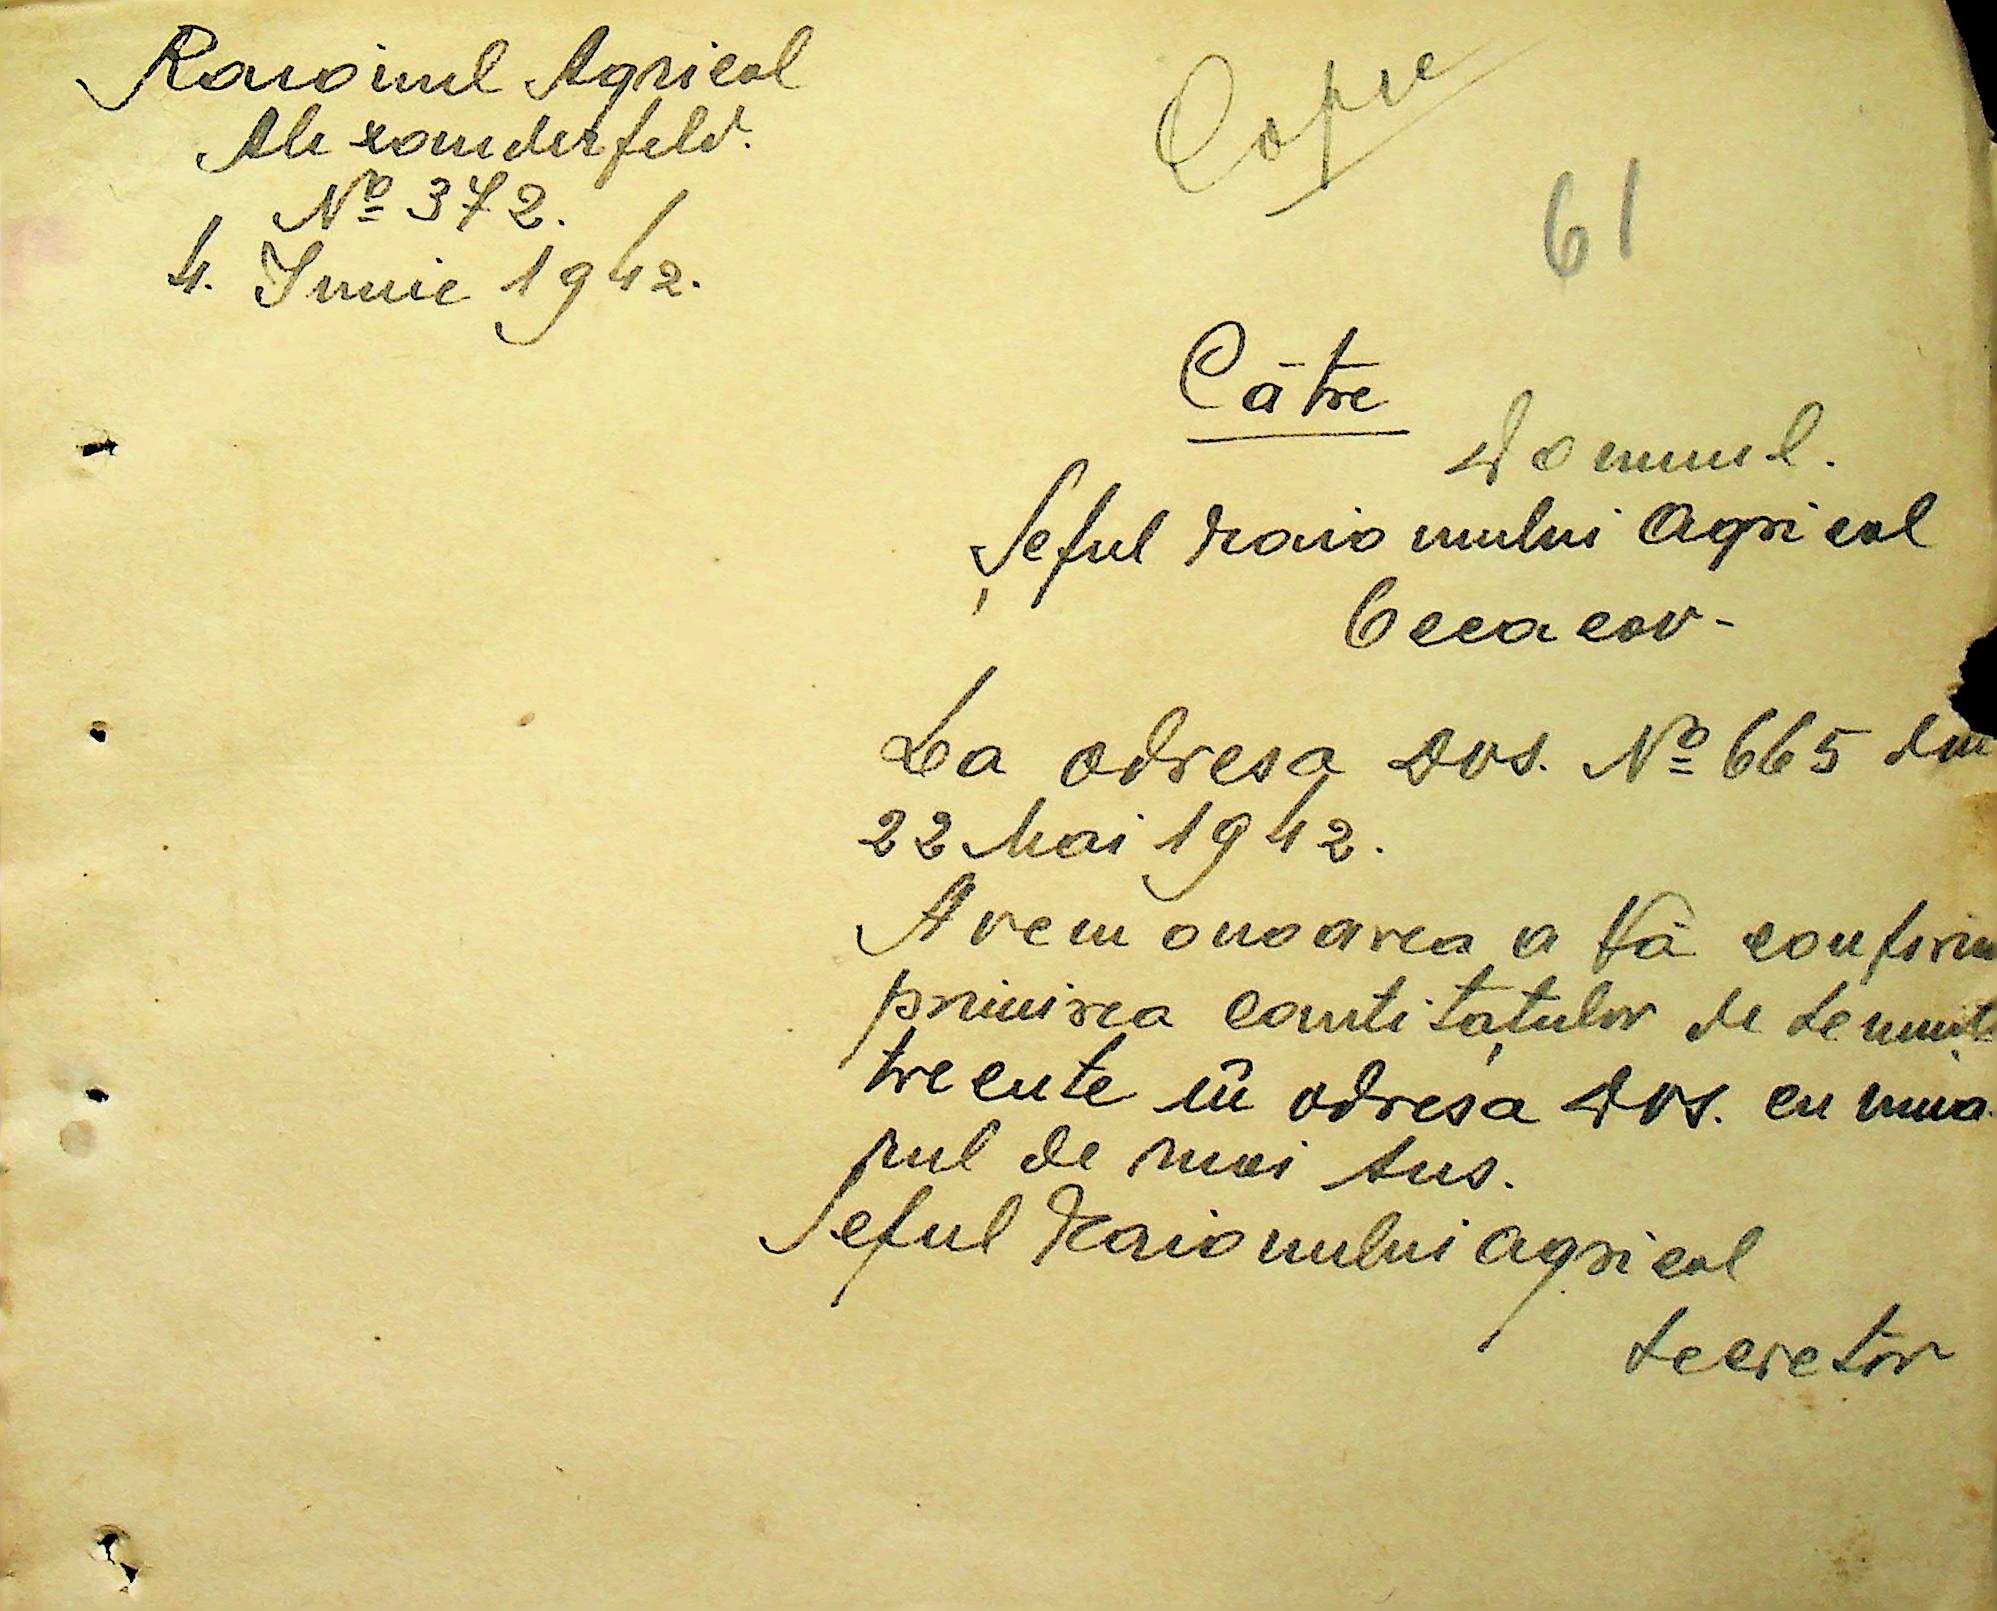 Raionul Agricol
Alexanderfeld.
Nº 372.
4. Iunie 1942.
Copie
61
Către
Domnul.
Șeful raionului Agricol
Ceacov-
La adresa Dvs. Nº 665 din
22 Mai 1942.
Avem onoarea a Vă confirm
primirea cantitaţulor de
trecute în adresa Dvs. cu numa
rul de mai sus.
Seful Raionului agricol
secretor